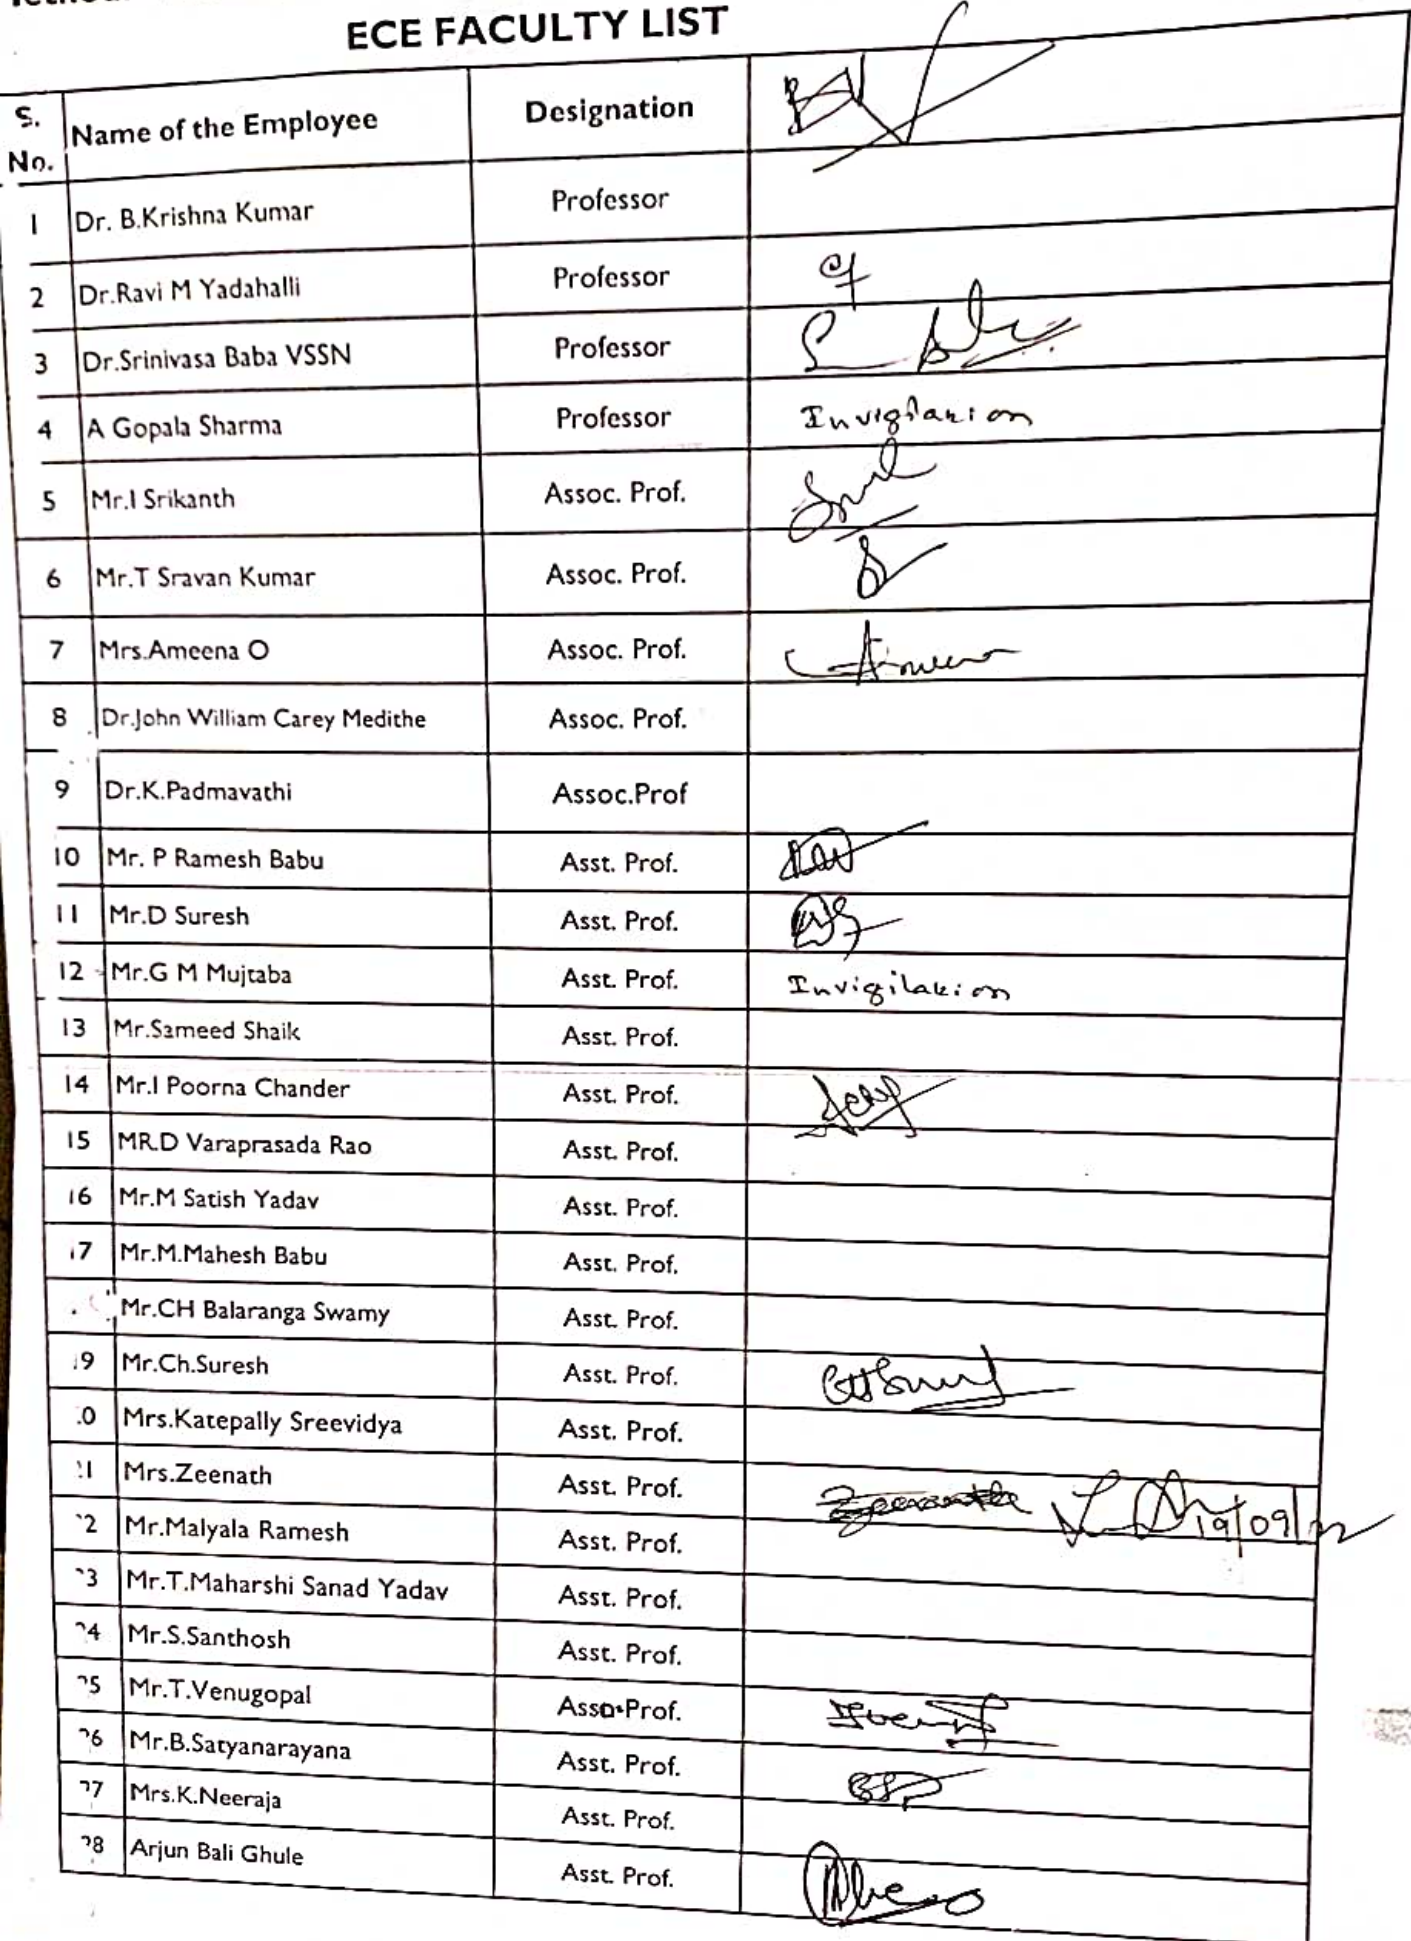 ECE FACULTY LIST
S. No. Name of the Employee Designation
1 Dr. B.Krishna Kumar Professor
2 Dr.Ravi M Yadahalli Professor
3 Dr.Srinivasa Baba VSSN Professor
4 A Gopala Sharma Professor Invigilation
5 Mr.I Srikanth Assoc. Prof.
6 Mr.T Sravan Kumar Assoc. Prof.
7 Mrs.Ameena O Assoc. Prof. Ameena
8 Dr.John William Carey Medithe Assoc. Prof.
9 Dr.K.Padmavathi Assoc.Prof
10 Mr. P Ramesh Babu Asst. Prof.
11 Mr.D Suresh Asst. Prof.
12 Mr.G M Mujtaba Asst. Prof. Invigilation
13 Mr.Sameed Shaik Asst. Prof.
14 Mr.I Poorna Chander Asst. Prof.
15 MR.D Varaprasada Rao Asst. Prof.
16 Mr.M Satish Yadav Asst. Prof.
17 Mr.M.Mahesh Babu Asst. Prof.
Mr.CH Balaranga Swamy Asst. Prof.
19 Mr.Ch.Suresh Asst. Prof.
0 Mrs.Katepally Sreevidya Asst. Prof.
21 Mrs.Zeenath Asst. Prof.
2 Mr.Malyala Ramesh Asst. Prof. 19/09/22
3 Mr.T.Maharshi Sanad Yadav Asst. Prof.
4 Mr.S.Santhosh Asst. Prof.
5 Mr.T.Venugopal Asso.Prof.
6 Mr.B.Satyanarayana Asst. Prof.
7 Mrs.K.Neeraja Asst. Prof.
8 Arjun Bali Ghule Asst. Prof.